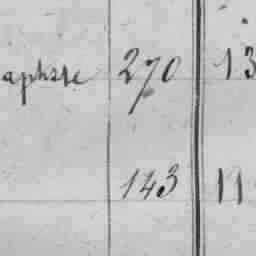 270 13
143 11